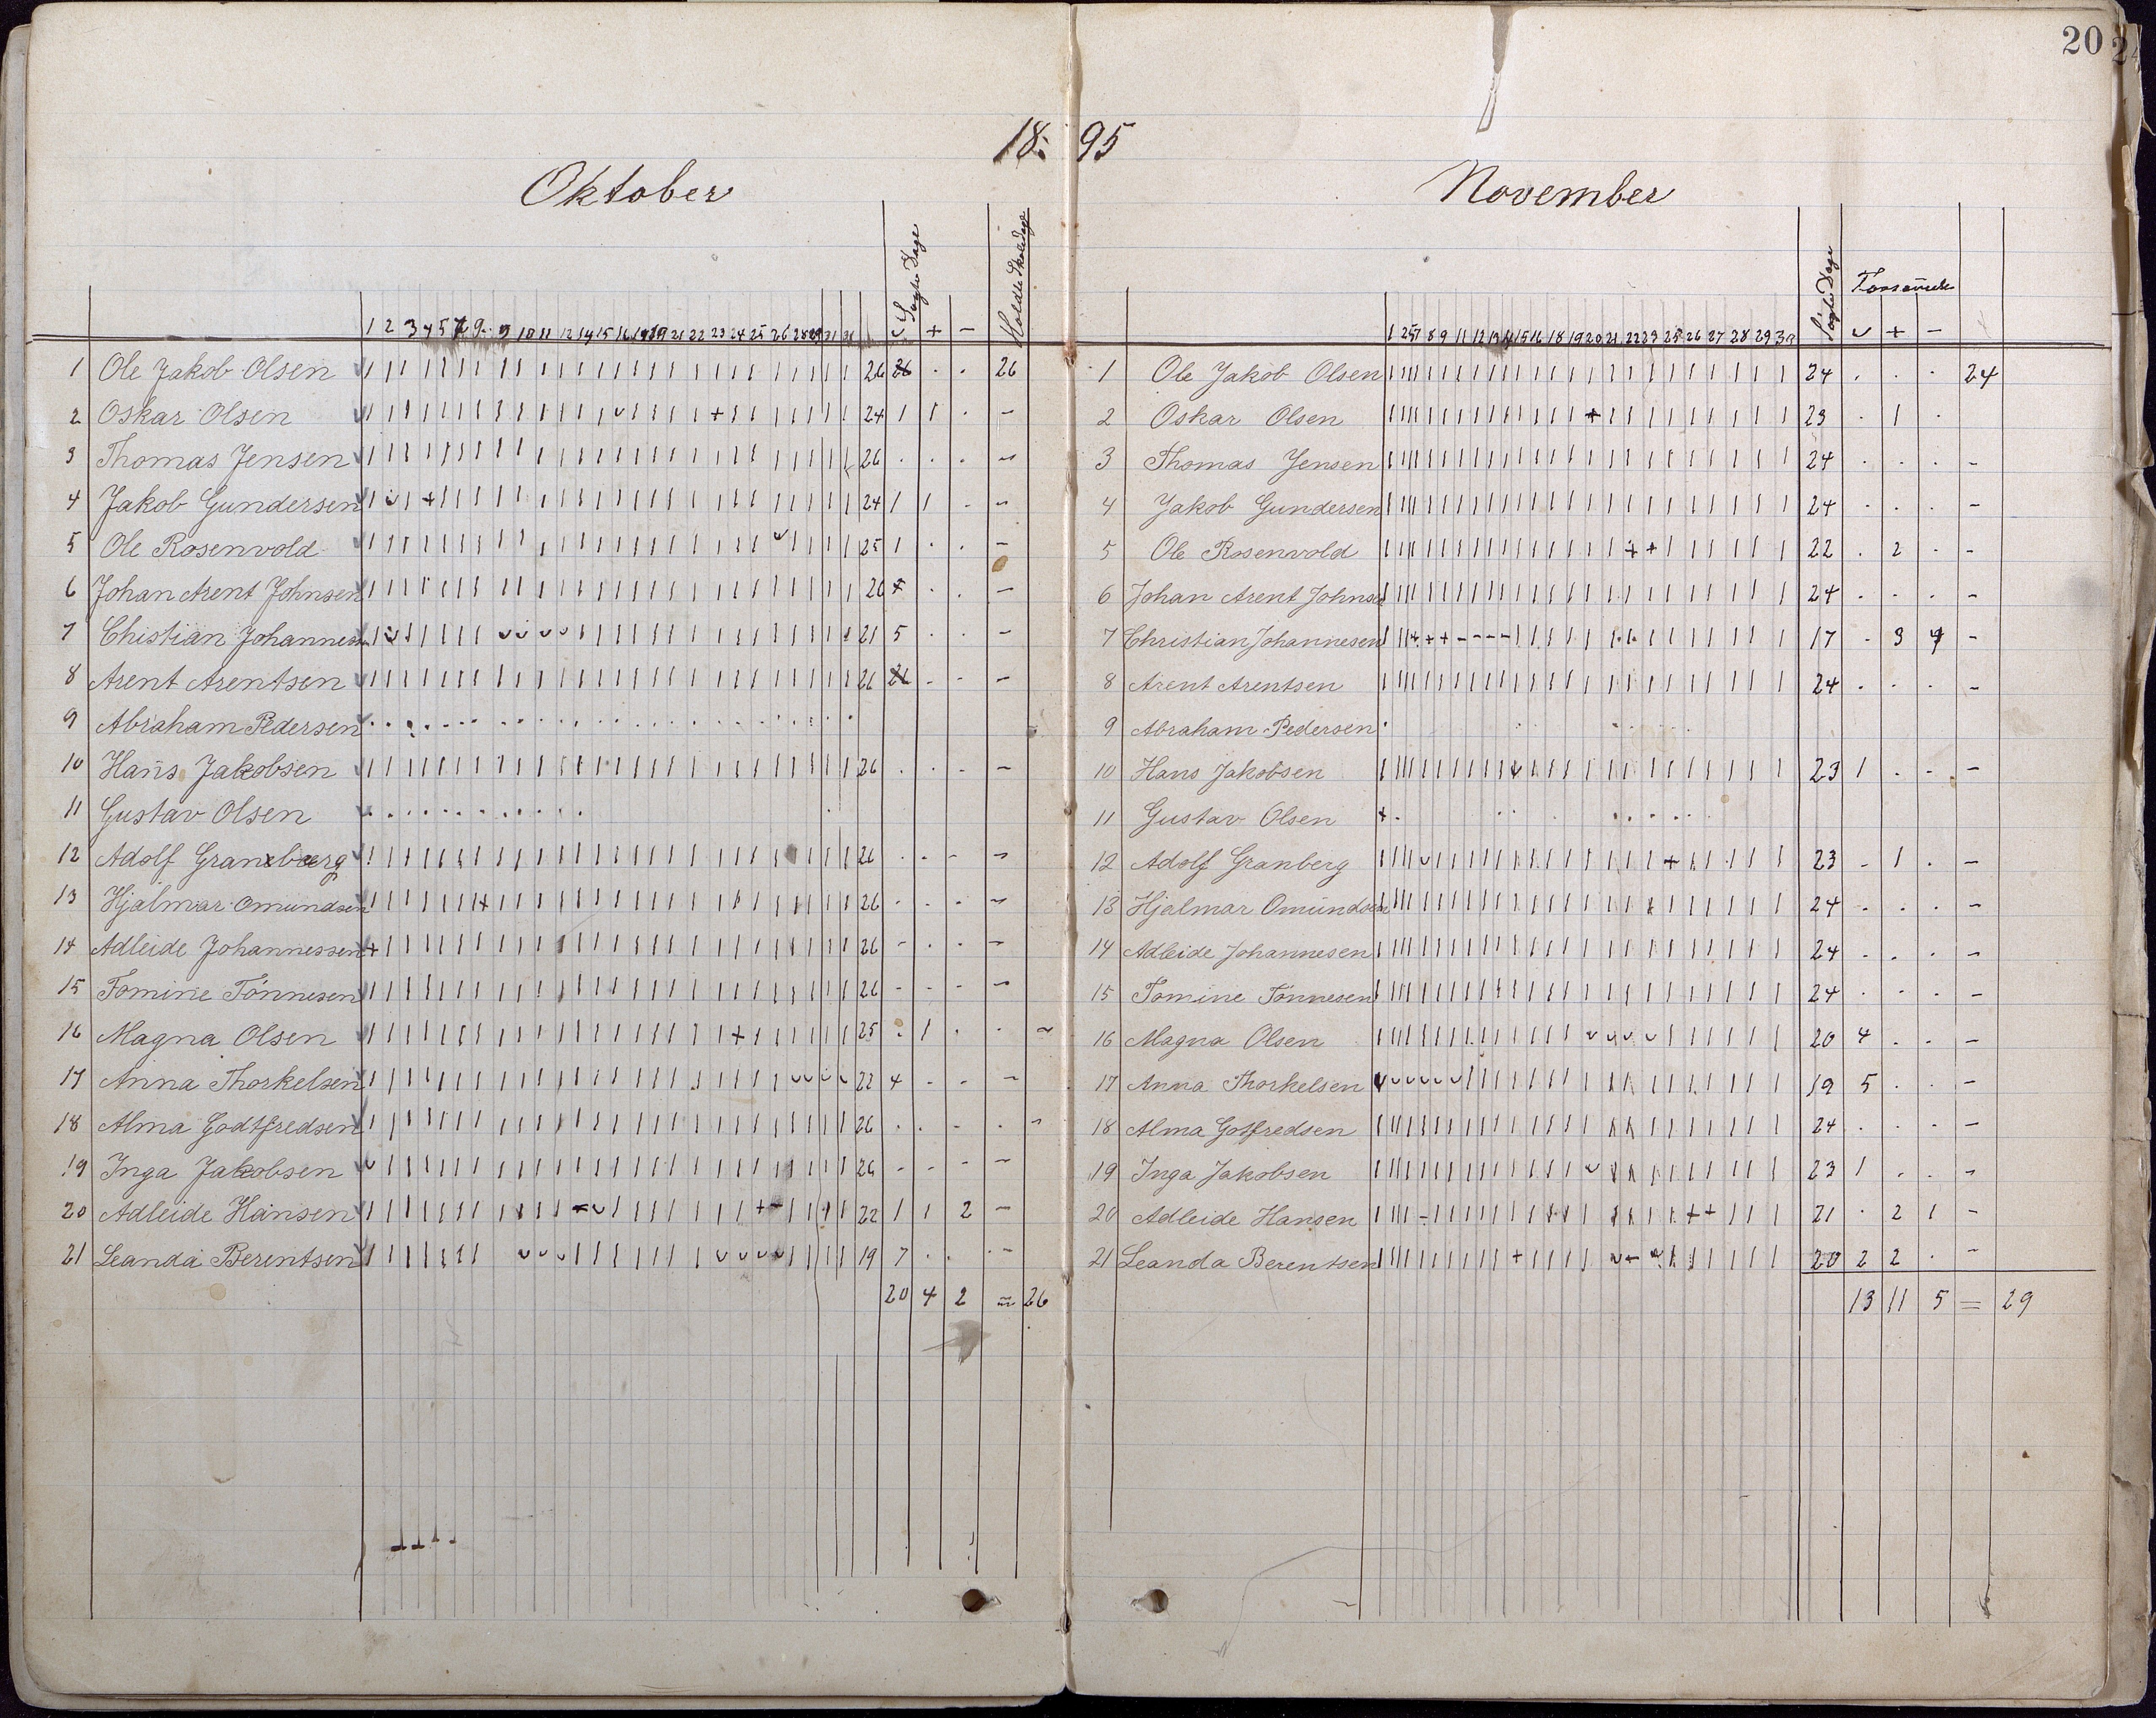 20
18 95
Oktober
Søgte Dage
Holdte Skoledage
1 2 3 4 5 7 9 10 11 12 14 15 16 19 21 22 23 24 25 26 28 29 31
+ -
1 Ole Jakob Olsen 26 26 . . 26
2 Oskar Olsen 24 1 1 . -
3 Thomas Jensen 26 . . . -
4 Jakob Gundersen 24 1 1 - -
5 Ole Rosenvold 25 1 . . -
6 Johan Arent Johnsen 26 . . -
7 Chistian Johannesen 21 5 . . -
8 Arent Arentsen 26 26 - - -
9 Abraham Pedersen
10 Hans Jakobsen 26 . . - -
11 Gustav Olsen
12 Adolf Granberg 26 . - - -
13 Hjalmar Omundsen 26 - - - -
14 Adleide Johannessen 26 - . - -
15 Tomine Tönnesen 26 - - - -
16 Magna Olsen 25 . 1 . . -
17 Anna Thorkelsen 22 4 - - -
18 Alma Godtfredsen 26 . . - . -
19 Inga Jakobsen 26 - - - -
20 Adleide Hansen 22 1 1 2 -
21 Leanda Berentsen 19 7 . . -
20 4 2 = 26
November
Søgte Dage
1 2 5 7 8 9 11 12 13 14 15 16 18 19 20 21 22 23 25 26 27 28 29 30
+ -
1 Ole Jakob Olsen 24 . . . 24
2 Oskar Olsen 23 . 1 .
3 Thomas Jensen 24 . . . -
4 Jakob Gundersen 24 . . . -
5 Ole Rosenvold 22 . 2 . -
6 Johan Arent Johnsen 24 . . . -
7 Christian Johannesen 17 - 3 4 -
8 Arent Arentsen 24 . . . -
9 Abraham Pedersen
10 Hans Jakobsen 23 1 . . -
11 Gustav Olsen
12 Adolf Granberg 23 - 1 . -
13 Hjalmar Omundsen 24 . . . -
14 Adleide Johannesen 24 . . . -
15 Tomine Tonnesen 24 . . . -
16 Magna Olsen 20 4 . . -
17 Anna Thorkelsen 19 5 . . -
18 Alma Gotfredsen 24 . . . -
19 Inga Jakobsen 23 1 . . -
20 Adleide Hansen 21 . 2 1 -
21 Leanda Berentsen 20 2 2 . -
13 11 5 = 29